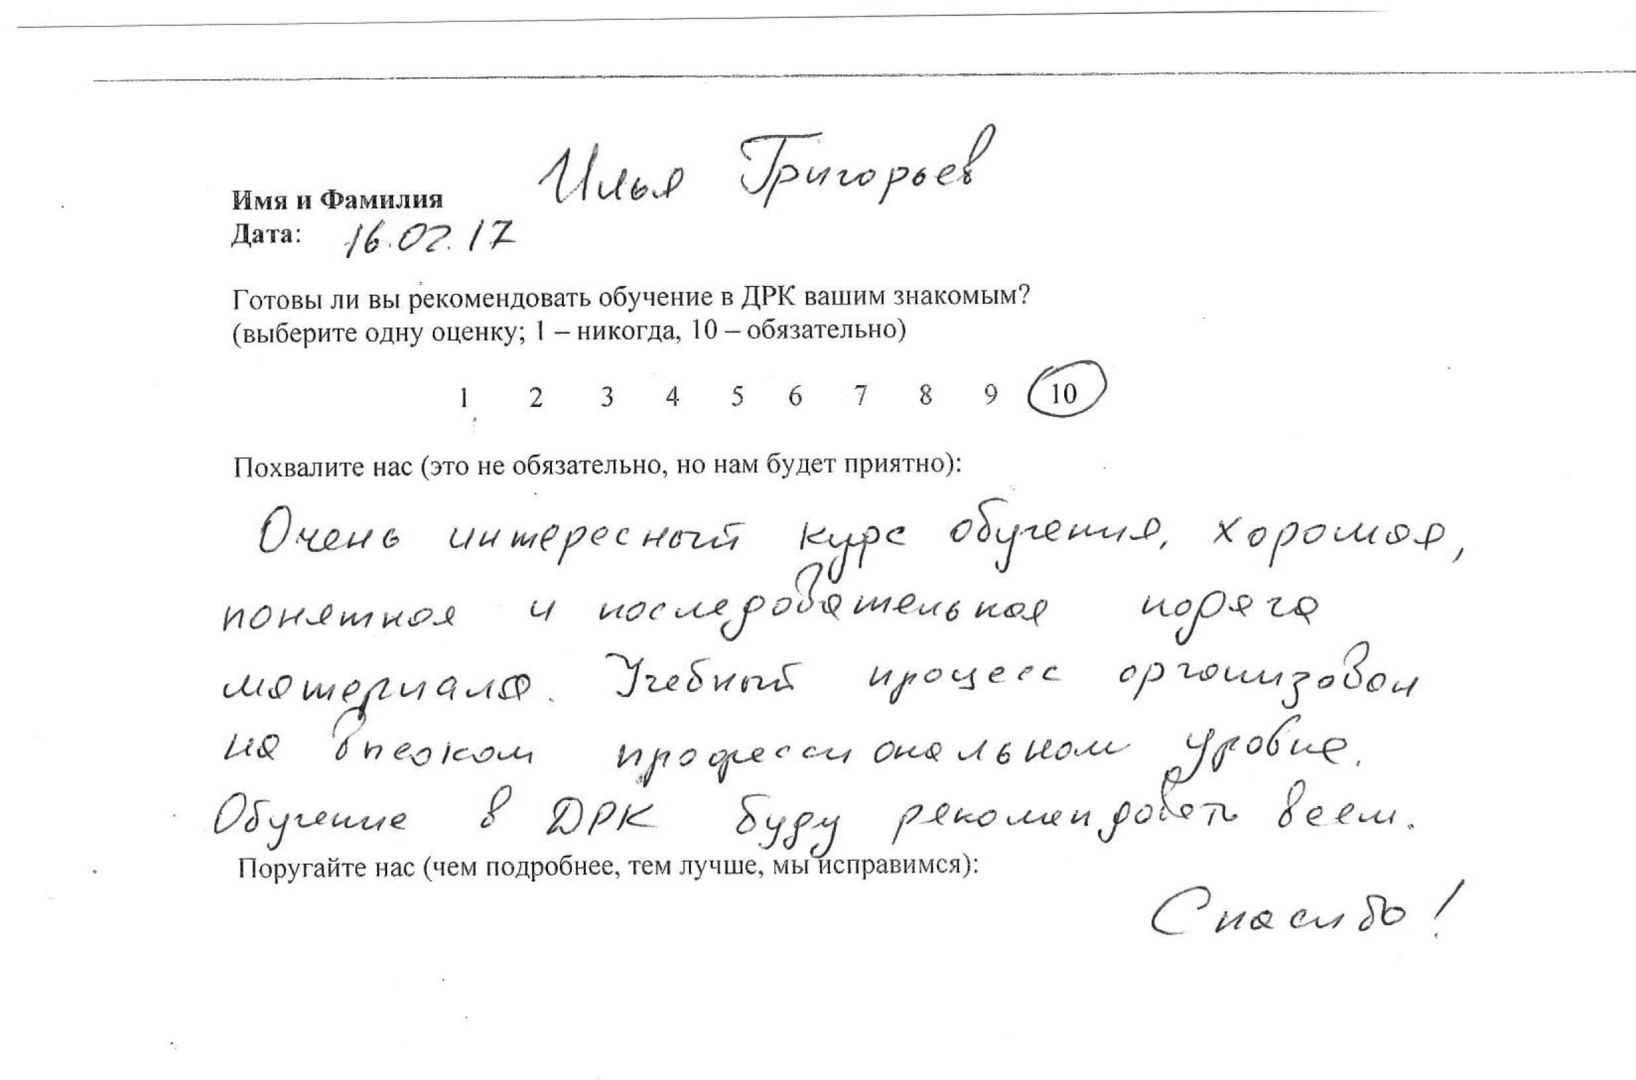 Имя и Фамилия Илья Григорьев
Дата: 16.02.17
Готовы ли вы рекомендовать обучение в ДРК вашим знакомым?
(выберите одну оценку; 1 – никогда, 10 – обязательно)
1 2 3 4 5 6 7 8 9 10
Похвалите нас (это не обязательно, но нам будет приятно):
Очень интересный курс обучения, хорошая,
понятная и последовательная
материала. Учебный процесс организован
на высоком профессиональном уровне.
Обучение в ДРК буду рекомендовать всем.
Поругайте нас (чем подробнее, тем лучше, мы исправимся):
Спасибо!